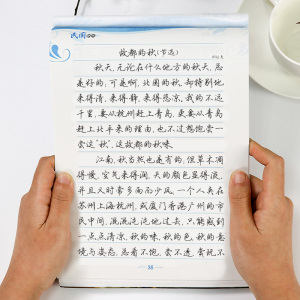 民国四四
故都的秋(节选)
秋天,无论在什么地方的秋天,总
是好的;可是啊,北国的秋,却特别地
来得清,来得静,来得悲凉。我的不远
千里,要从杭州赶上青岛,更要从青岛
赶上北平来的理由,也不过想饱尝一
尝这"秋",这故都的秋味。
江南,秋当然也是有的,但草木凋
得慢,空气来得润,天的颜色显得淡,
并且又时常多雨而少风;一个人夹在
苏州上海杭州,或厦门香港广州的市
民中间,混混沌沌地过去,只能感到
一点点清凉,秋的味,秋的色,秋的意
境与姿态,总看不饱,尝不透,赏玩不